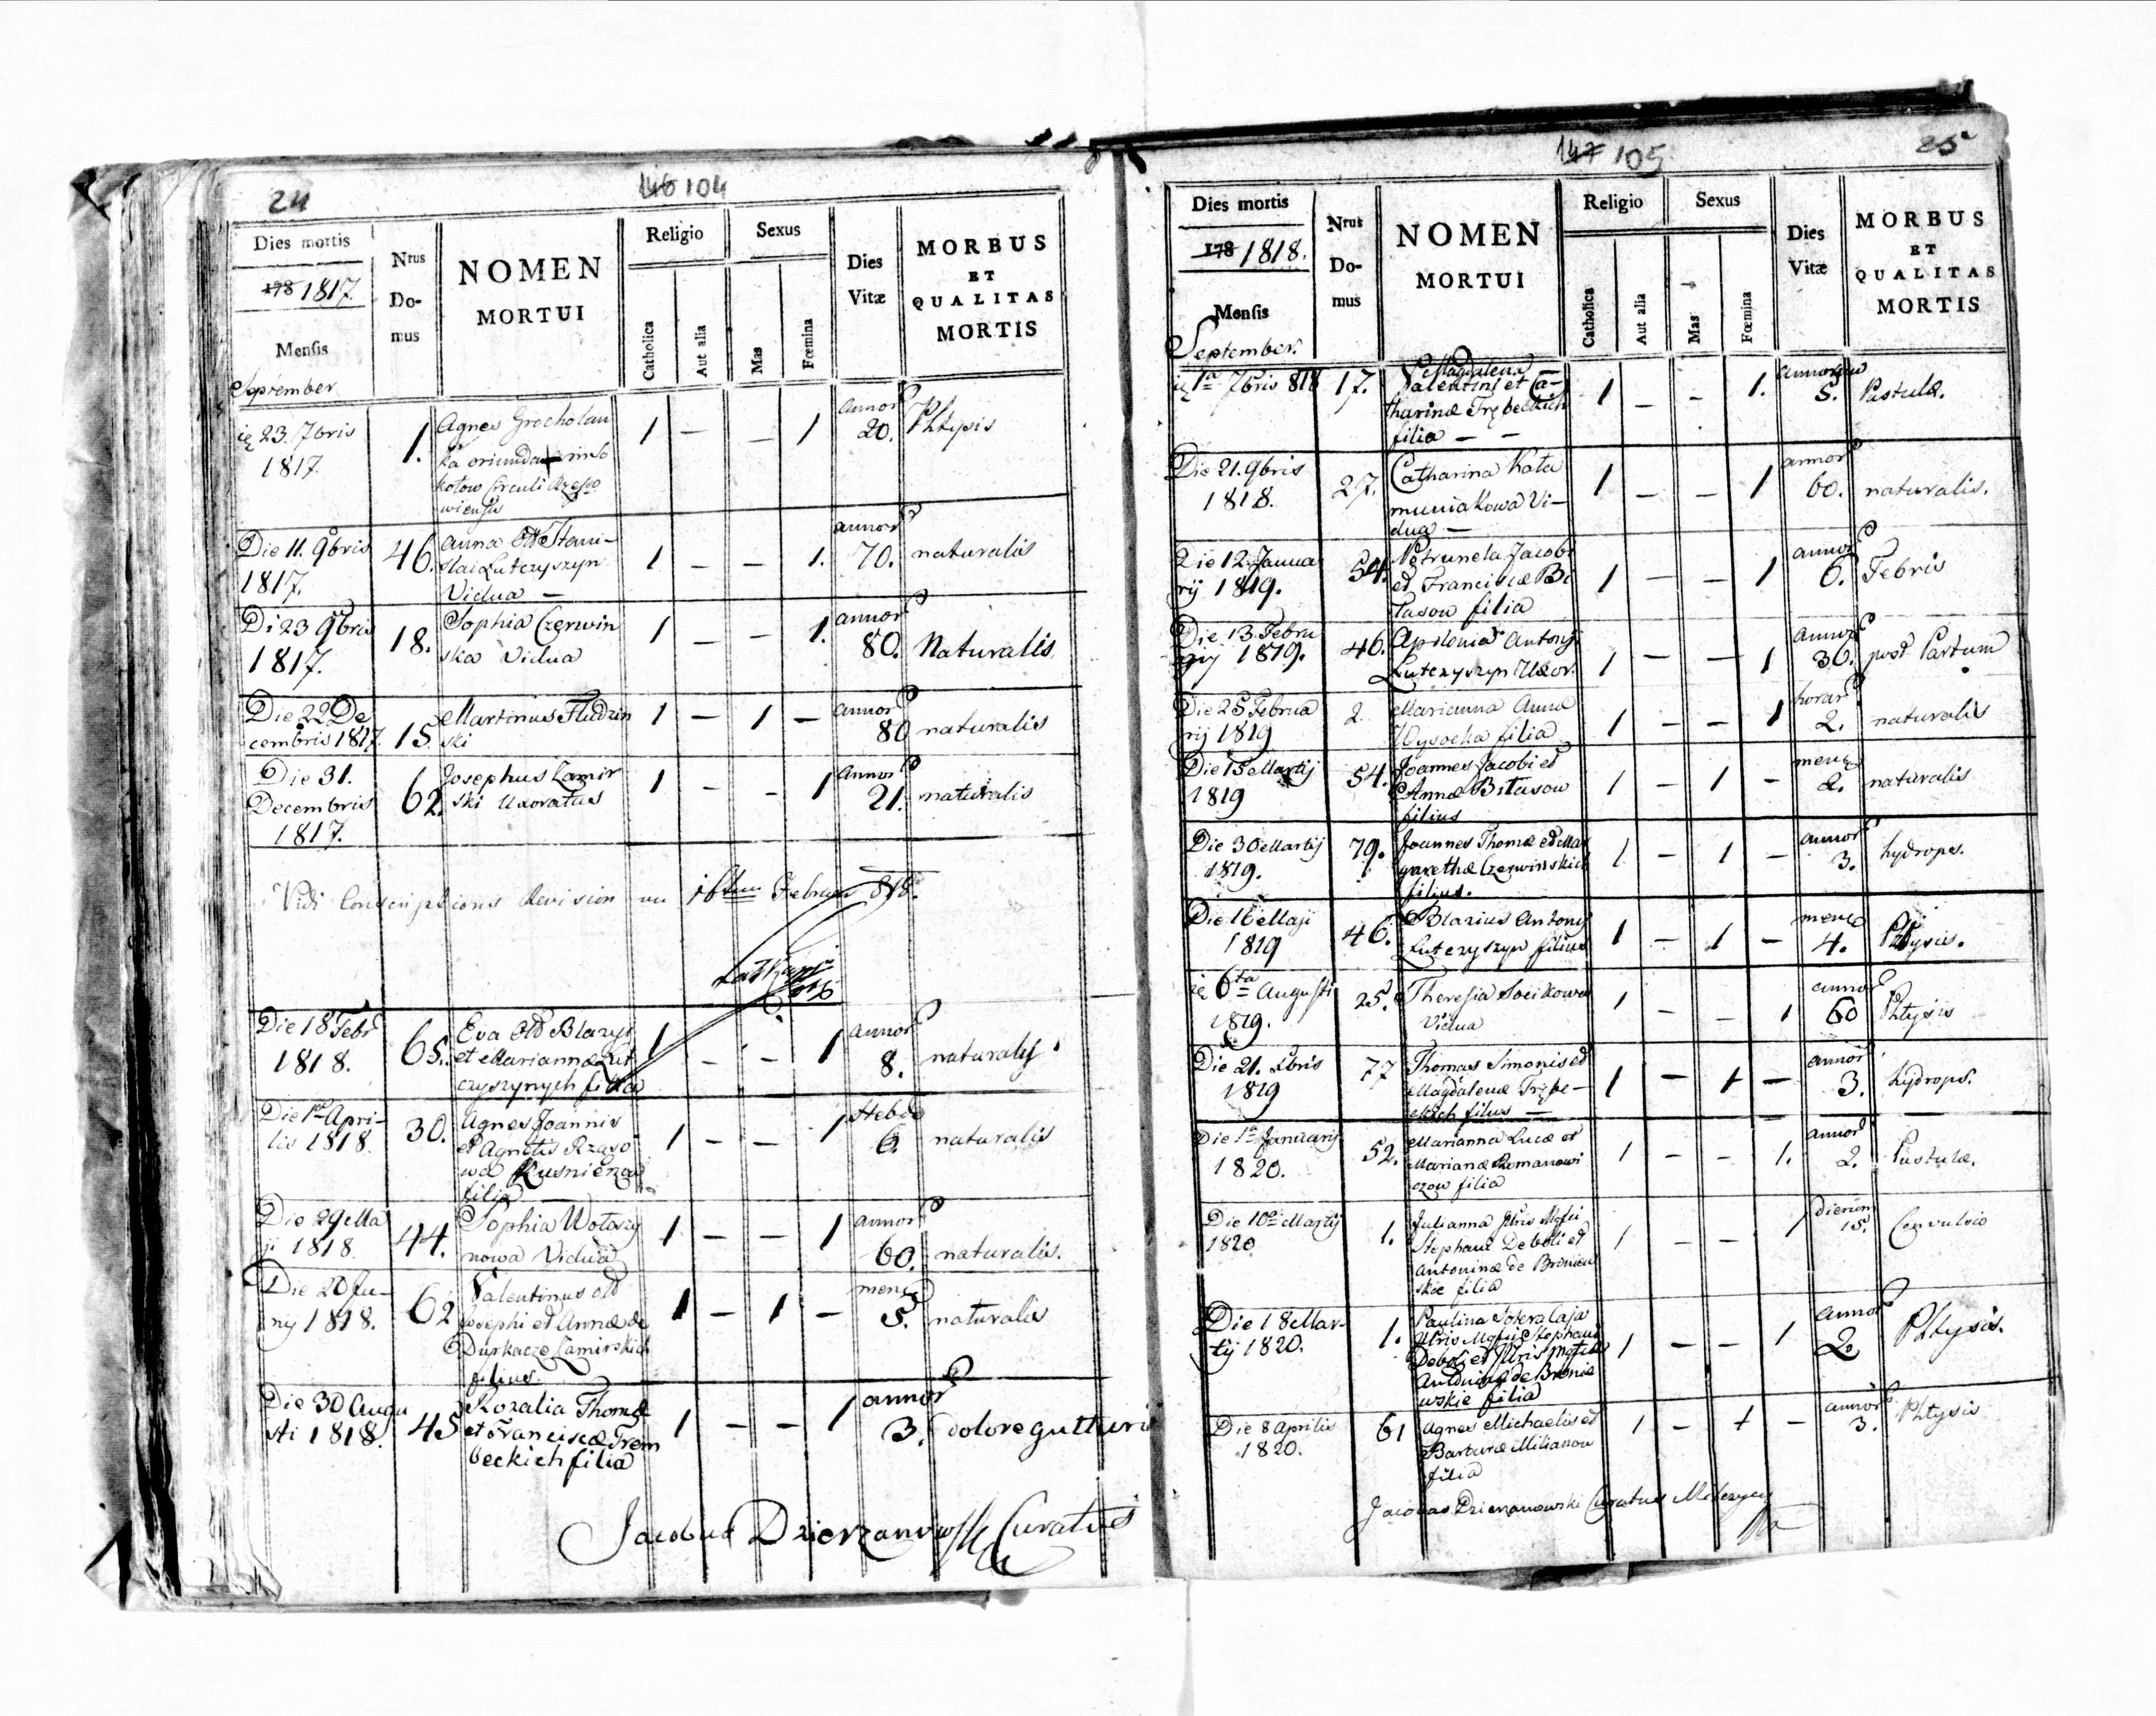 24
146 104
Dies mortis
178 1817.
Mensis
September
Nrus
Do-
mus
NOMEN
MORTUI
Religio
Catholica
Aut alia
Sexus
Mas
Fœmina
Dies
Vitæ
MORBUS
ET
QUALITAS
MORTIS
23. 7bris
1817.
1.
Agnes Grocholau
ka oriunda
kotow Circuli Rzeszo
wiensis
1 — — 1
annor
20.
Phtysis
Die 11. 9bris
1817.
46.
Anna Stani-
slai Luteryszyn
Vidua —
1 — — 1.
annor
70.
naturalis
Di 23 9bris
1817.
18.
Sophia Czerwin
ska Vidua
1 — — 1.
annor
80.
Naturalis
Die 22 De
cembris 1817.
15.
Martinus Fludzin
ski
1 — 1 —
annor
80
naturalis
Die 31.
Decembris
1817.
62.
Josephus Zamir
ski Uxoratus
1 — — 1
Annor
21.
naturalis
Vidi Conscriptions Revision 16ten Februar 818.
Die 18 Febr
1818.
65.
Eva Blazys
et Mariannæ Lut
czyszynych filia
1 — — 1
annor
8.
naturalis
Die 1 Apri-
lis 1818.
30.
Agnes Joannis
et Agnetis Rzaso
wa Kusnierzow
filia
1 — — 1
Hebdo
6.
naturalis
Die 29 Ma
ji 1818.
44.
Sophia Wotoszy
nowa Vidua
1 — — 1
annor
60.
naturalis.
Die 20 Ju-
nij 1818.
62
Valentinus
Josephi et Annæ de
Durkacze Zamirskich
filius.
1 — 1 —
mens
5.
naturalis
Die 30 Augu
sti 1818.
45
Rozalia Thomæ
et Franciscæ Trem
beckich filia
1 — — 1
annor
3.
dolore gutturis
Jacobus Dzierzanowski Curatus
147 105
25
Dies mortis
178 1818.
Mensis
September.
Nrus
Do-
mus
NOMEN
MORTUI
Religio
Catholica
Aut alia
Sexus
Mas
Fœmina
Dies
Vitæ
MORBUS
ET
QUALITAS
MORTIS
1a 7bris 818
17.
Magdalena
Valentini et Ca-
tharinæ Trębeckich
filia — —
1 — — 1.
annorum
5.
Pustulæ.
Die 21. 9bris
1818.
27.
Catharina Kata
muniakowa Vi-
dua —
1 — — 1
annor
60.
naturalis.
Die 12. Janua
rij 1819.
54.
Petrunela Jacobi
et Franciscæ Bi
tasow filia
1 — — 1
annor
6.
Febris
Die 13 Febru
arij 1819.
46.
Apolonia Antonij
Luteryszyn Uxor.
1 — — 1
annor
36.
post Partum
Die 25 Februa
rij 1819
2.
Marianna Anna
Wysocka filia
1 — — 1
horar
2.
naturalis
Die 15 Martij
1819
54.
Joannes Jacobi et
Annæ Bitasow
filius
1 — 1 —
mens
2.
naturalis
Die 30 Martij
1819.
79.
Joannes Thomæ et Mar
garethæ Czerwinskich
filius.
1 — 1 —
annor
3.
hydrops.
Die 16 Maji
1819
46.
Blazius Antonij
Luteryszyn filius
1 — 1 —
mens
4.
Phtysis.
6ta Augusti
1819.
25.
Theresia Socikowa
Vidua
1 — — 1
annor
60
Phtysis
Die 21. Xbris
1819
77
Thomas Simonis et
Magdalenæ Trębe-
ckich filius —
1 — 1 —
annor
3.
hydrops.
Die 1 Januarij
1820.
52.
Marianna Lucæ et
Marianæ Romanowi
czow filia
1 — — 1.
annor
2.
Pustulæ.
Die 10 Martij
1820
1.
Julianna Illris Mgfci
Stephani Deboli et
Antoninæ de Broniew
skie filia
1 — — 1
dierum
15.
Convulsio
Die 18 Mar-
tij 1820.
1.
Paulina
Illris Mgfci Stephani
Deboli et Illris Mgficæ
Antoninæ de Bronie
wskie filia
1 — — 1
annor
2.
Phtysis.
Die 8 Aprilis
1820.
61
Agnes Michaelis et
Barbaræ Milianow
filia
1 — 1 —
annor
3.
Phtysis
Jacobus Dzierzanowski Curatus